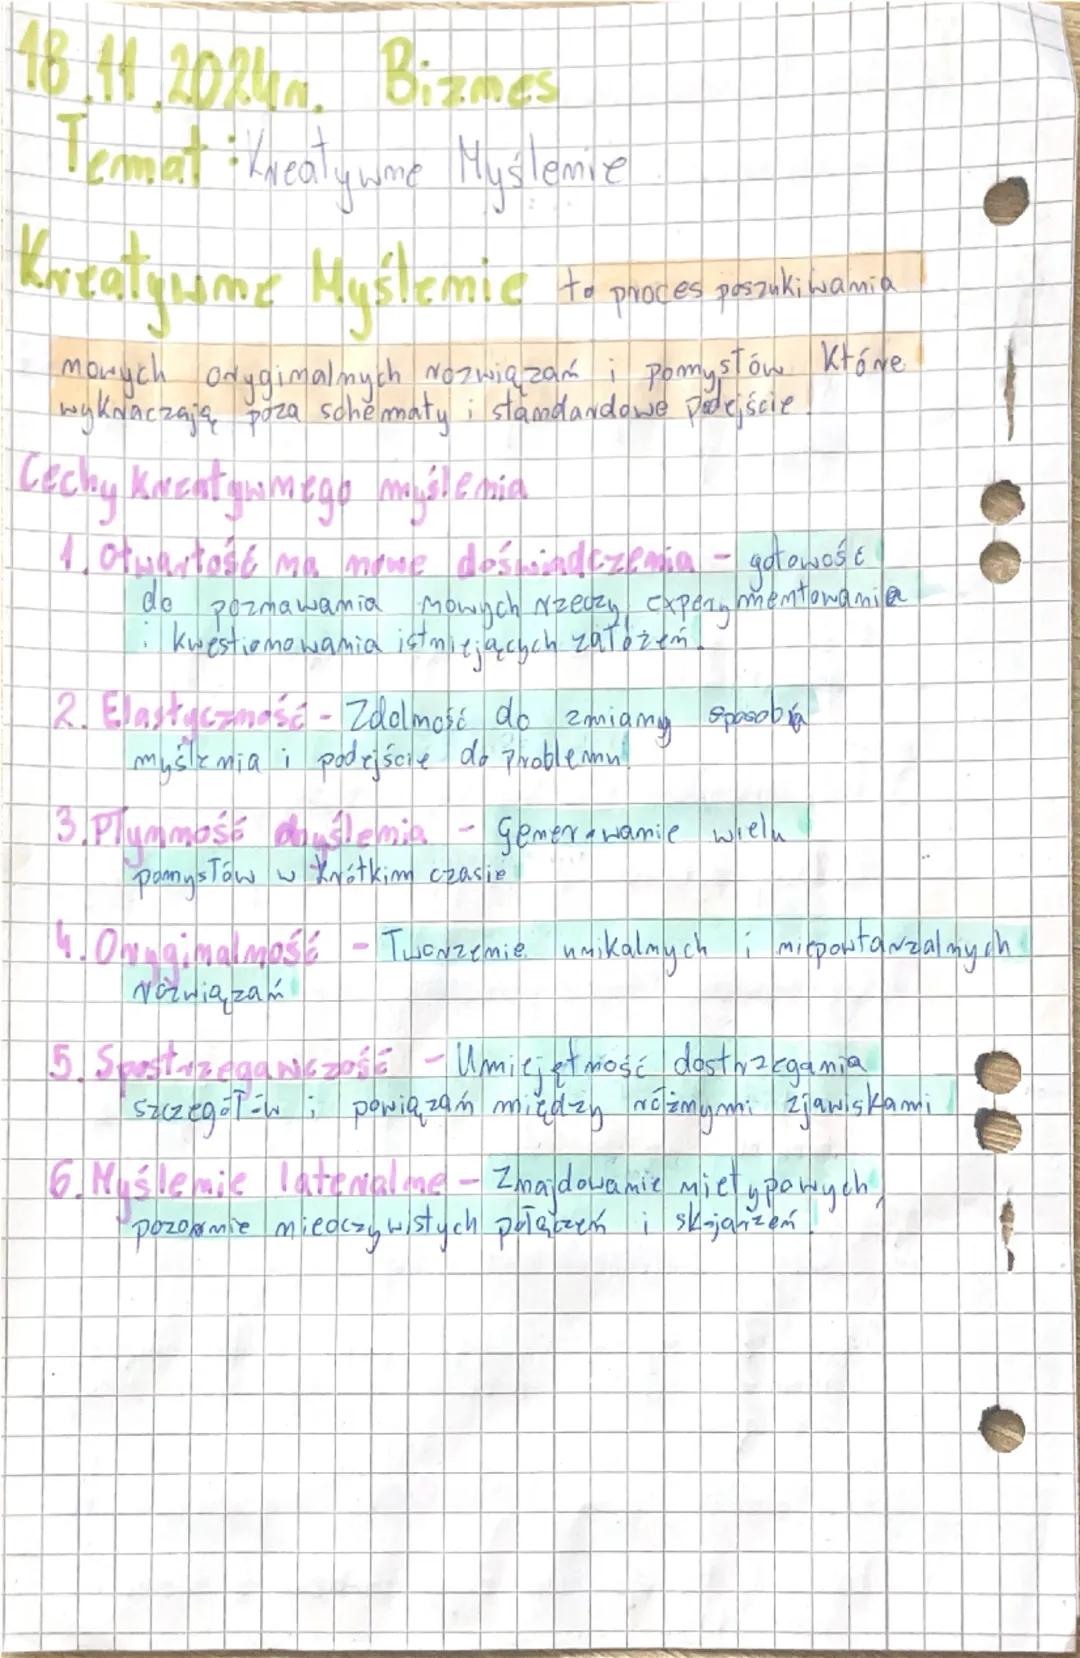 18.11.2024r. Biznes
Temat: Kreatywne Myślenie
Kreatywne Myślenie to proces poszukiwania
nowych oryginalnych rozwiązań i pomysłów które
wykraczają poza schematy i standardowe podejście.
Cechy kreatywnego myślenia
1. Otwartość na nowe doświadczenia - gotowość
do poznawania nowych rzeczy, experymentowania
i kwestionowania istniejących założeń.
2. Elastyczność - Zdolność do zmiany sposobu
myślenia i podejście do problemu.
3. Płynność myślenia - Generowanie wielu
pomysłów w krótkim czasie
4. Oryginalność - Tworzenie unikalnych i niepowtarzalnych
rozwiązań
5. Spostrzegawczość - Umiejętność dostrzegania
szczegółów i powiązań między różnymi zjawiskami
6. Myślenie lateralne - Znajdowanie nietypowych,
pozornie nieoczywistych połączeń i skojarzeń.